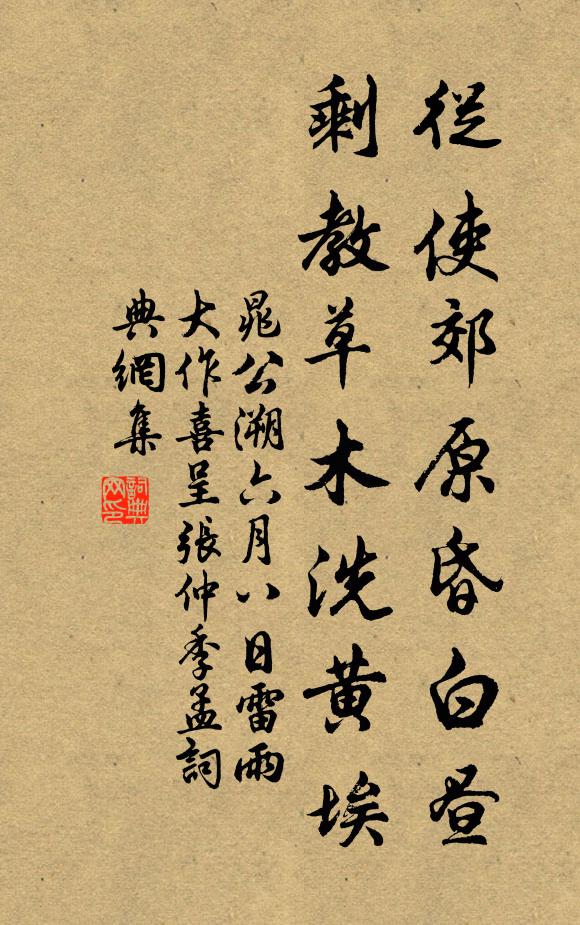 從使郊原昏白晝
剩教草木洗黃埃
晁公溯六月八日雷雨
大作喜呈張仲季孟詞
典網集
詞典
网印